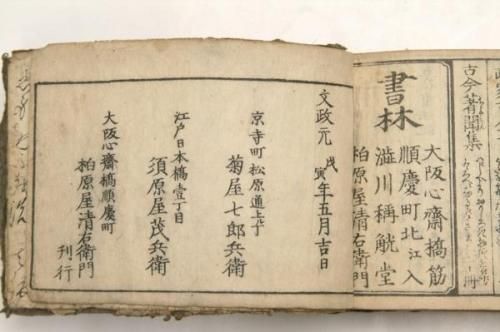 古今著聞集
書林
大阪心齋橋筋
順慶町北江入
澁川稱觥堂
柏原屋清右衛門
文政元戊寅年五月吉日
京寺町松原通上ル
菊屋七郎兵衛
江戸日本橋壹丁目
須原屋茂兵衛
大阪心齋橋順慶町
柏原屋清右衛門
刊行